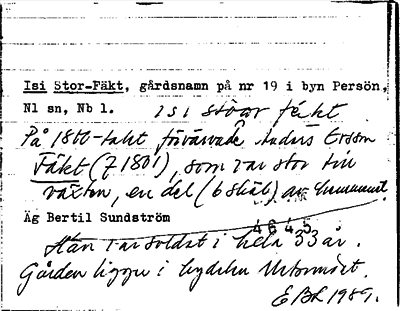 Isi Stor-Fäkt, gårdsnamn på nr 19 i byn Persön,
Nl sn, Nb l. isi stöor fäkt
På 1800-talet förvärvade Anders Ersson
Fäkt (f 1801), som var stor till
växten, en del (6 skål) av hemmanet.
Äg Bertil Sundström
4645
Han var soldat i hela 33 år.
Gården ligger i bydelen Utomnört.
1989.